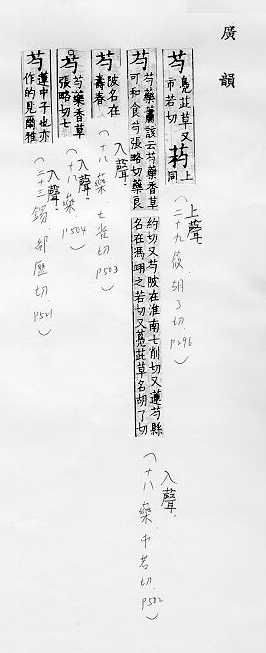 廣韻
芍 鳧茈草又市若切 上同
上聲.
(二十九 篠, 胡了切, P296)
芍 芍藥蕭該云芍藥香草可和食芍張略切藥良
約切又芍陂在淮南七削切又蓮芍縣名在馮翊之若切又鳧茈草名胡了切
入聲.
(十八 藥, 市若切, P502)
芍 陂名在壽春
入聲.
(十八 藥 七雀切 P503)
芍 芍藥香草張略切
入聲.
(十八 藥 P504)
芍 蓮中子也亦作的見爾雅
入聲.
(二十三 錫, 都歷切, P521)